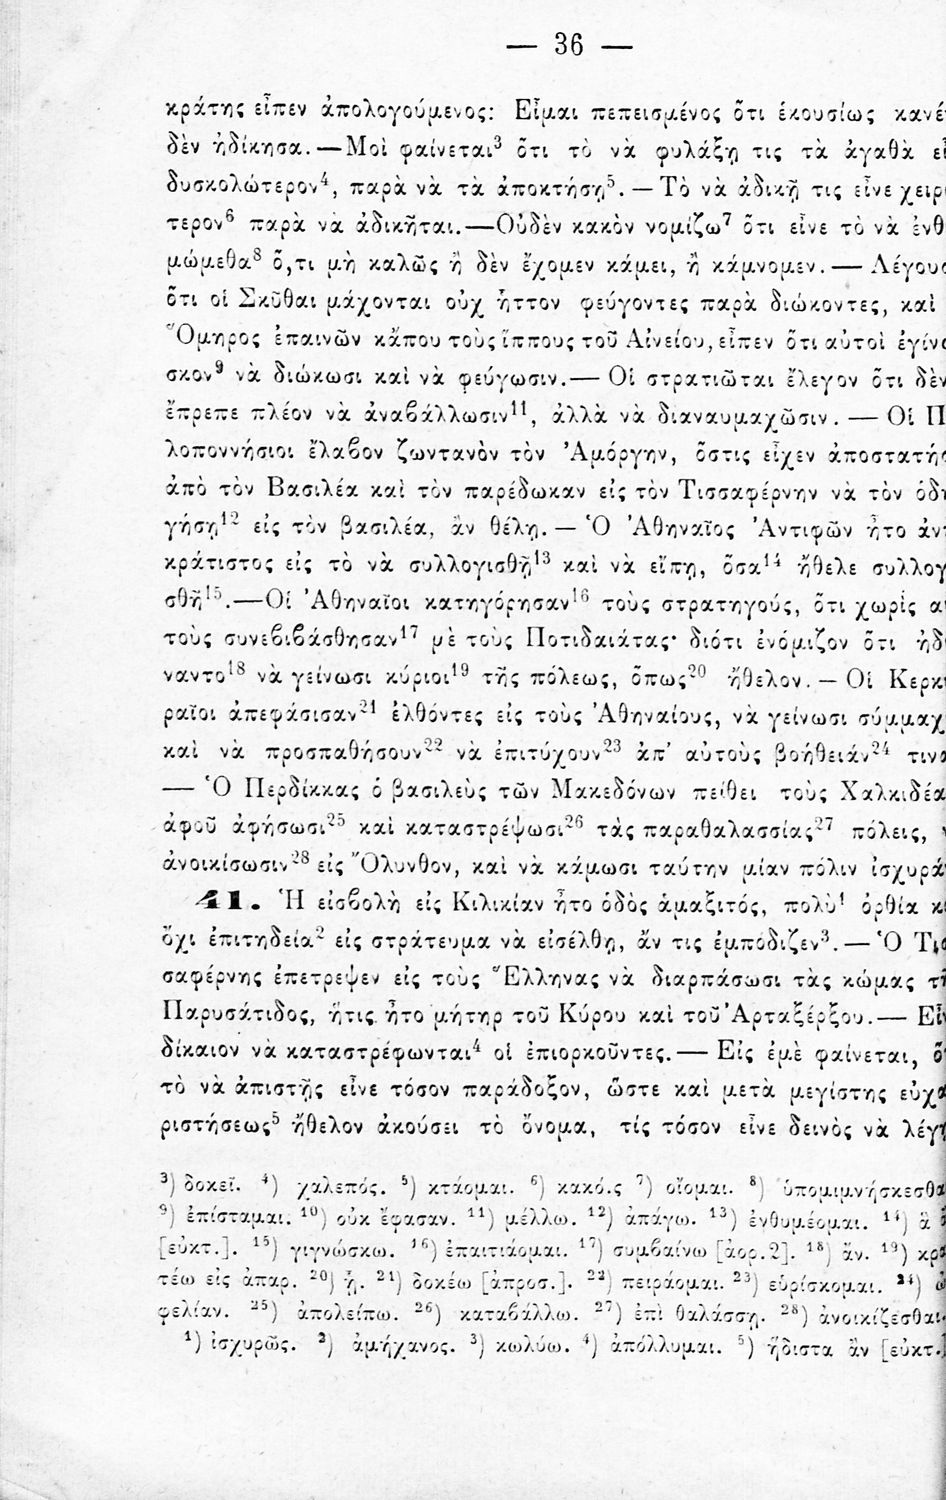 — 36 —
κράτης εἶπεν ἀπολογούμενος: Εἶμαι πεπεισμένος ὅτι ἑκουσίως κανέ
δὲν ἠδίκησα. — Μοὶ φαίνεται³ ὅτι τὸ νὰ φυλάξῃ τις τὰ ἀγαθὰ εἶ
δυσκολώτερον⁴, παρὰ νὰ τὰ ἀποκτήσῃ⁵. — Τὸ νὰ ἀδικῇ τις εἶνε χειρ
τερον⁶ παρὰ νὰ ἀδικῆται. — Οὐδὲν κακὸν νομίζω⁷ ὅτι εἶνε τὸ νὰ ἐνθ
μώμεθα⁸ ὅ,τι μὴ καλῶς ἢ δὲν ἔχομεν κάμει, ἢ κάμνομεν. — Λέγουσ
ὅτι οἱ Σκῦθαι μάχονται οὐχ ἧττον φεύγοντες παρὰ διώκοντες, καὶ
Ὅμηρος ἐπαινῶν κἄπου τοὺς ἵππους τοῦ Αἰνείου, εἶπεν ὅτι αὐτοὶ ἐγίνω
σκον⁹ νὰ διώκωσι καὶ νὰ φεύγωσιν. — Οἱ στρατιῶται ἔλεγον ὅτι δὲν
ἔπρεπε πλέον νὰ ἀναβάλλωσιν¹¹, ἀλλὰ νὰ διαναυμαχῶσιν. — Οἱ Π
λοποννήσιοι ἔλαβον ζωντανὸν τὸν Ἀμόργην, ὅστις εἶχεν ἀποστατήσ
ἀπὸ τὸν Βασιλέα καὶ τὸν παρέδωκαν εἰς τὸν Τισσαφέρνην νὰ τὸν ὁδη
γήσῃ¹² εἰς τὸν βασιλέα, ἂν θέλῃ. — Ὁ Ἀθηναῖος Ἀντιφῶν ἦτο ἀν
κράτιστος εἰς τὸ νὰ συλλογισθῇ¹³ καὶ νὰ εἴπῃ, ὅσα¹⁴ ἤθελε συλλογ
σθῆ¹⁵. — Οἱ Ἀθηναῖοι κατηγόρησαν¹⁶ τοὺς στρατηγούς, ὅτι χωρὶς α
τοὺς συνεβιβάσθησαν¹⁷ μὲ τοὺς Ποτιδαιάτας· διότι ἐνόμιζον ὅτι ἠδ
ναντο¹⁸ νὰ γείνωσι κύριοι¹⁹ τῆς πόλεως, ὅπως²⁰ ἤθελον. — Οἱ Κερκ
ραῖοι ἀπεφάσισαν²¹ ἐλθόντες εἰς τοὺς Ἀθηναίους, νὰ γείνωσι σύμμαχ
καὶ νὰ προσπαθήσουν²² νὰ ἐπιτύχουν²³ ἀπ' αὐτοὺς βοήθειάν²⁴ τινα
— Ὁ Περδίκκας ὁ βασιλεὺς τῶν Μακεδόνων πείθει τοὺς Χαλκιδέα
ἀφοῦ ἀφήσωσι²⁵ καὶ καταστρέψωσι²⁶ τὰς παραθαλασσίας²⁷ πόλεις, ν
ἀνοικίσωσιν²⁸ εἰς Ὄλυνθον, καὶ νὰ κάμωσι ταύτην μίαν πόλιν ἰσχυρά
41. Ἡ εἰσβολὴ εἰς Κιλικίαν ἦτο ὁδὸς ἁμαξιτός, πολὺ¹ ὀρθία κα
ὄχι ἐπιτηδεία² εἰς στράτευμα νὰ εἰσέλθῃ, ἄν τις ἐμπόδιζεν³. — Ὁ Τισ
σαφέρνης ἐπέτρεψεν εἰς τοὺς Ἕλληνας νὰ διαρπάσωσι τὰς κώμας τῆ
Παρυσάτιδος, ἥτις ἦτο μήτηρ τοῦ Κύρου καὶ τοῦ Ἀρταξέρξου. — Εἶν
δίκαιον νὰ καταστρέφωνται⁴ οἱ ἐπιορκοῦντες. — Εἰς ἐμὲ φαίνεται, ὅτ
τὸ νὰ ἀπιστῇς εἶνε τόσον παράδοξον, ὥστε καὶ μετὰ μεγίστης εὐχα
ριστήσεως⁵ ἤθελον ἀκούσει τὸ ὄνομα, τίς τόσον εἶνε δεινὸς νὰ λέγῃ
³) δοκεῖ. ⁴) χαλεπός. ⁵) κτάομαι. ⁶) κακό.ς ⁷) οἴομαι. ⁸) ὑπομιμνήσκεσθα
⁹) ἐπίσταμαι. ¹⁰) οὐκ ἔφασαν. ¹¹) μέλλω. ¹²) ἀπάγω. ¹³) ἐνθυμέομαι. ¹⁴) ἃ
[εὐκτ.]. ¹⁵) γιγνώσκω. ¹⁶) ἐπαιτιάομαι. ¹⁷) συμβαίνω [ἀορ.2]. ¹⁸) ἄν. ¹⁹) κρα
τέω εἰς ἀπαρ. ²⁰) ᾗ. ²¹) δοκέω [ἀπροσ.]. ²²) πειράομαι. ²³) εὑρίσκομαι. ²⁴) ὠ
φελίαν. ²⁵) ἀπολείπω. ²⁶) καταβάλλω. ²⁷) ἐπὶ θαλάσσῃ. ²⁸) ἀνοικίζεσθαι.
¹) ἰσχυρῶς. ²) ἀμήχανος. ³) κωλύω. ⁴) ἀπόλλυμαι. ⁵) ἥδιστα ἂν [εὐκτ.]